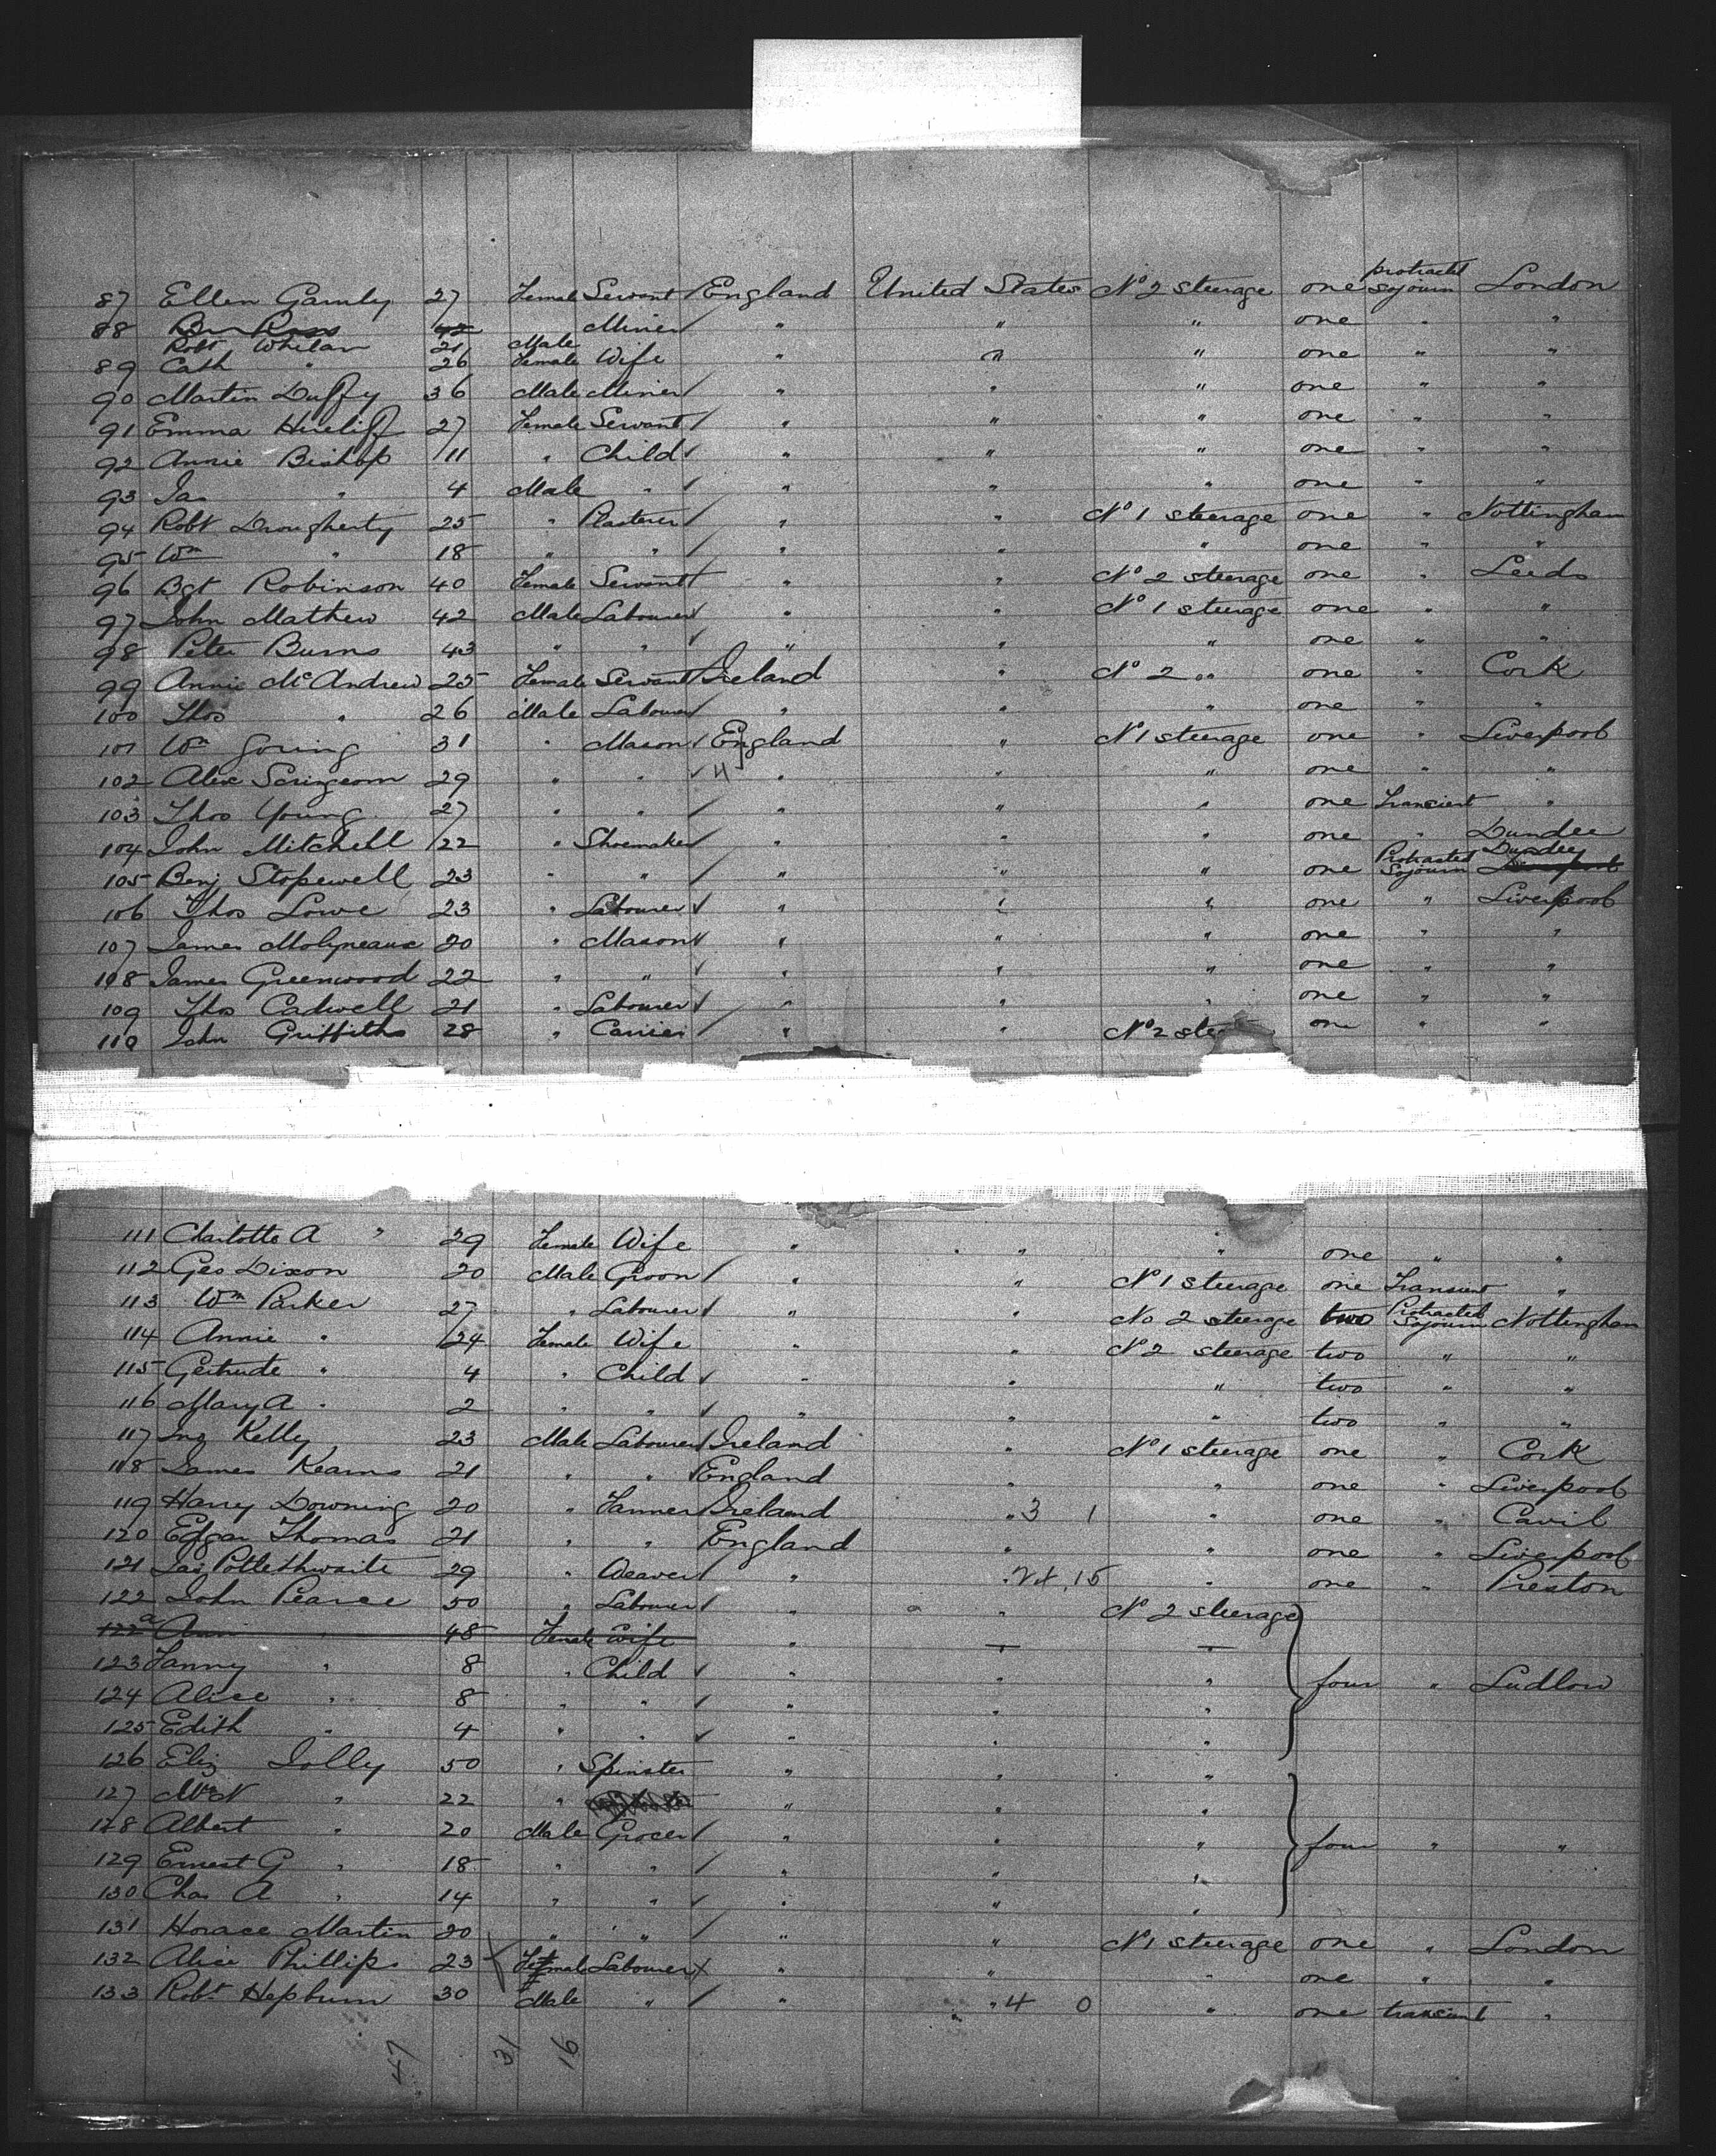 87 Ellen Gamly 27 Female Servant / England United States No 2 steerage one protracted sojourn London
88 Ben Ross 42 Miner / " " " one " "
Robt Whelan 21 Male
89 Cath " 26 Female Wife " " " one " "
90 Martin Duffy 36 Male Miner / " " " one " "
91 Emma 27 Female Servant / " " " one " "
92 Annie Bishop 11 " Child / " " " one " "
93 Jas " 4 Male " / " " " one " "
94 Robt Drougherty 25 " Plasterer / " " No 1 steerage one " Nottingham
95 Wm " 18 " " / " " " one " "
96 Bgt Robinson 40 Female Servant / " " No 2 steerage one " Leeds
97 John Mathew 42 Male Labourer / " " No 1 steerage one " "
98 Peter Burns 43 " " / " " " one " "
99 Annie McAndrew 25 Female Servant / Ireland " No 2 " one " Cork
100 Thos " 26 Male Labourer / " " " one " "
101 Wm Goring 31 " Mason / England " No 1 steerage one " Liverpool
102 Alex Scringeom 29 " " / 4 " " " one " "
103 Thos Young 27 " " / " " " one Transient "
104 John Mitchell 22 " Shoemaker / " " " one " Dundee
105 Benj Stopewell 23 " " / " " " one Protracted Sojourn Dundey Liverpool
106 Thos Lowe 23 " Labourer / " " " one " Liverpool
107 James Molyneaux 20 " Mason / " " " one " "
108 James Greenwood 22 " " / " " " one " "
109 Thos Cadwell 21 " Labourer / " " " one " "
110 John Griffiths 28 " Carrier / " " No 2 stee one " "
111 Charlotte A " 29 Female Wife " " " one " "
112 Geo Dixon 20 Male Groom / " " No 1 steerage one Transient "
113 Wm Parker 27 " Labourer / " " No 2 steerage two Protracted Sojourn Nottingham
114 Annie " 24 Female Wife " " No 2 steerage two " "
115 Gertrude " 4 " Child / " " " two " "
116 Mary A " 2 " " / " " " two " "
117 Jno Kelly 23 Male Labourer / Ireland " No 1 steerage one " Cork
118 James Kearns 21 " " / England " " one " Liverpool
119 Harry Downing 20 " Tanner / Ireland " 3 1 " one " Cavil
120 Edgar Thomas 21 " " England " " one " Liverpool
121 Jas Potlethwaite 29 " Weaver / " " 15 " one " Preston
122 John Pearce 50 " Labourer / " " No 2 steerage
122a Ann " 48 Female Wife " " "
123 Fanny " 8 " Child / " " " four " Ludlow
124 Alice " 8 " " / " " "
125 Edith " 4 " " / " " "
126 Eliz Jolly 50 " Spinster " " "
127 " 22 " " " "
128 Albert " 20 Male Grocer / " " " four " "
129 Ernest G " 18 " " / " " "
130 Chas A " 14 " " / " " "
131 Horace Martin 20 " " / " " No 1 steerage one " London
132 Alice Phillips 23 Female Labourer X " " " one " "
133 Robt Hepburn 30 Male " / " " 4 0 " one transient "
47 31 16